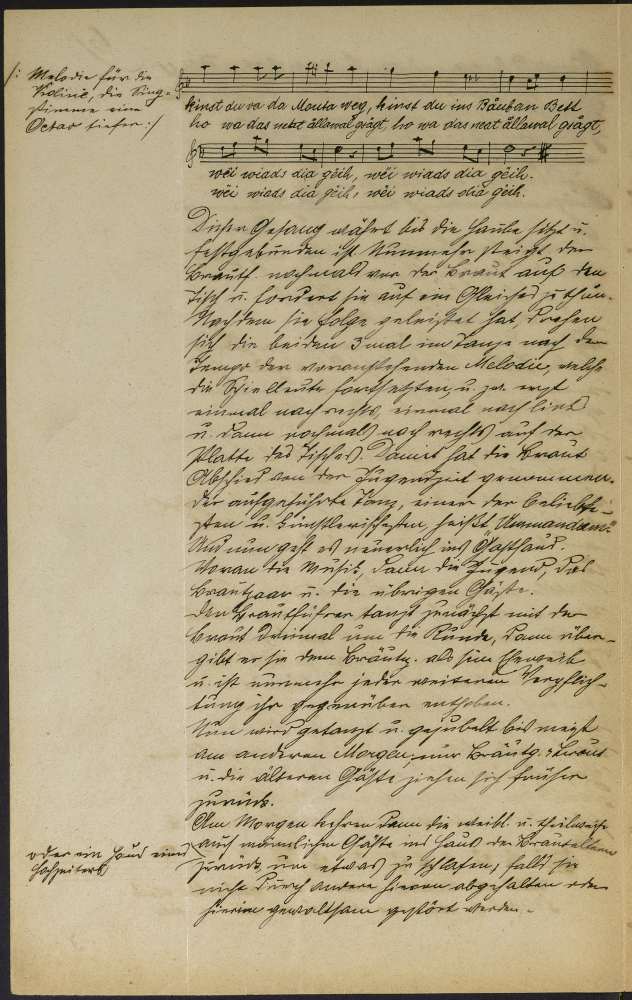 /: Melodie für die
Violine, die Sing-
stimme eine
Octav tiefer :/
kinst du va da Mouta weg, kinst du ins Bäuban Bett
ho wa das neat ällawal gsàgt, ho wa das neat ällawal gsàgt,
wëi wiads dia gëih, wëi wiads dia gëih.
wëi wiads dia gëih, wëi wiads dia gëih.
Dieser Gesang währt bis die Haube sitzt u.
festgebunden ist. Nunmehr steigt der
Brautf. nochmals vor der Braut auf den
Tisch u. fordert sie auf ein Gleiches zu thun.
Nachdem sie Folge geleistet hat, drehen
sich die beiden 3mal im Tanze nach dem
Tempo der voranstehenden Melodie, welche
die Spielleute fortsetzten, u. zw. erst
einmal nach rechts, einmal nach links
u. dann nochmals nach rechts auf der
Platte des Tisches. Damit hat die Braut
Abschied von der Jugendzeit genommen.
Der aufgeführte Tanz, einer der beliebte-
sten u. künstlerischesten, heißt
Und nun geht es neuerlich ins Gasthaus.
Voran die Musik, dann die Jugend, das
Brautpaar u. die übrigen Gäste.
Der Brautführer tanzt zunächst mit der
Braut dreimal um die Runde, dann über-
gibt er sie dem Bräutg. als sein Eheweib
u. ist nunmehr jeder weiteren Verpflich-
tung ihr gegenüber enthoben.
Nun wird getanzt u. gejubelt bis meist
am anderen Morgen, nur Bräutg. u. Braut
u. die älteren Gäste ziehen sich früher
zurück.
Am Morgen kehren dann die weibl. u. theilweise
auch männlichen Gäste ins Haus der Brauteltern
oder ein Haus eines
Hochzeiters
zurück, um etwas zu schlafen, falls sie
nicht durch andere hievon abgehalten oder
hierin gewaltsam gestört werden.